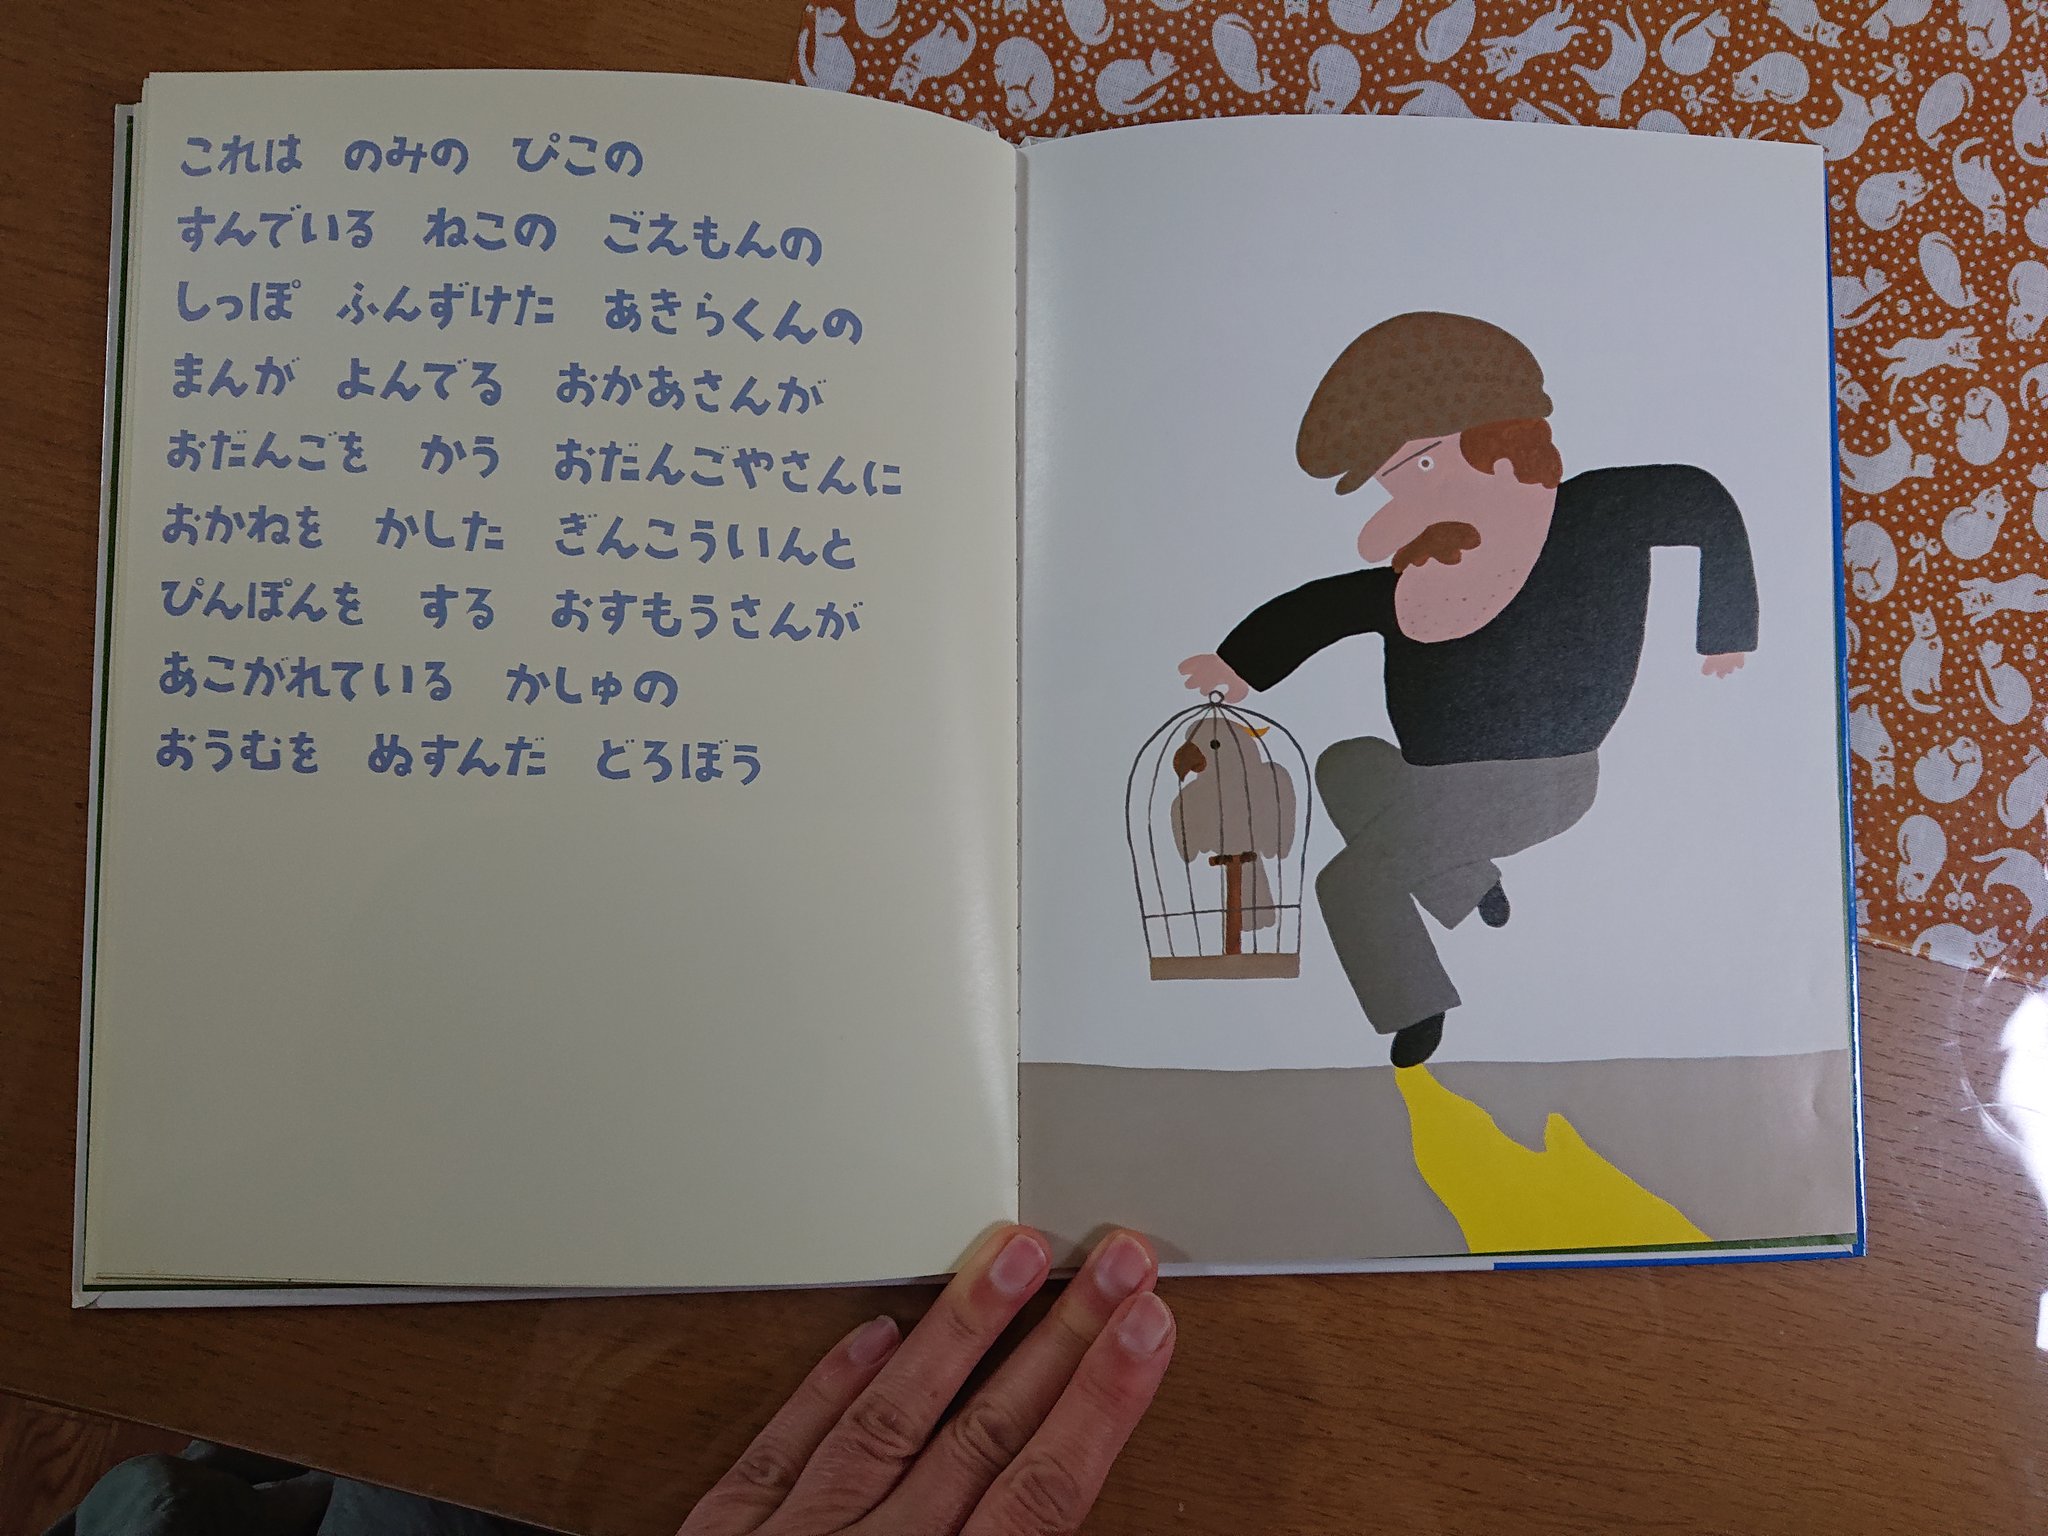 これは　のみの　ぴこの
すんでいる　ねこの　ごえもんの
しっぽ　ふんずけた　あきらくんの
まんが　よんでる　おかあさんが
おだんごを　かう　おだんごやさんに
おかねを　かした　ぎんこういんと
ぴんぽんを　する　おすもうさんが
あこがれている　かしゅの
おうむを　ぬすんだ　どろぼう